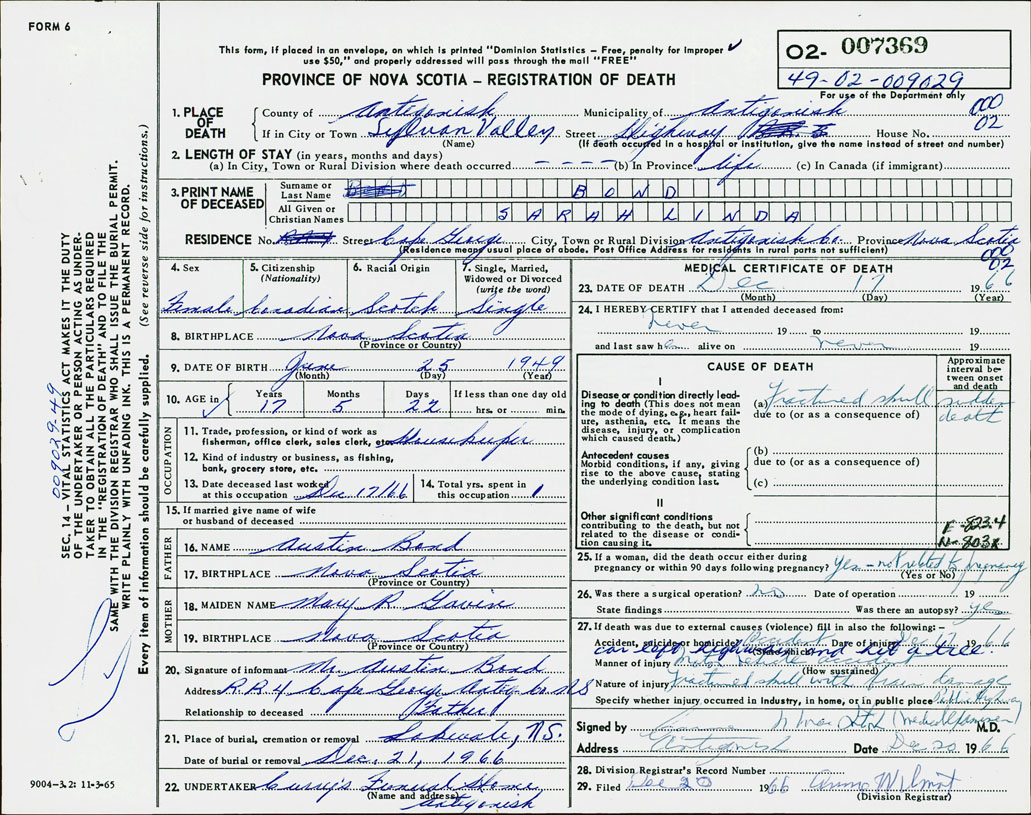 FORM 6
This form, if placed in an envelope, on which is printed "Dominion Statistics – Free, penalty for improper
use $50," and properly addressed will pass through the mail "FREE"
02- 007369
49-02-009029
For use of the Department only
PROVINCE OF NOVA SCOTIA – REGISTRATION OF DEATH
1. PLACE OF DEATH
County of Antigonish Municipality of Antigonish 000 02
If in City or Town Sylvan Valley Street Highway House No.
(Name) (If death occurred in a hospital or institution, give the name instead of street and number)
2. LENGTH OF STAY (in years, months and days)
(a) In City, Town or Rural Division where death occurred ---- (b) In Province life (c) In Canada (if immigrant)
3. PRINT NAME OF DECEASED
Surname or Last Name BOND
All Given or Christian Names SARAH LINDA
RESIDENCE No. Street Cape George City, Town or Rural Division Antigonish Co. Province Nova Scotia
(Residence means usual place of abode. Post Office Address for residents in rural parts not sufficient) 000 02
4. Sex
Female
5. Citizenship (Nationality)
Canadian
6. Racial Origin
Scotch
7. Single, Married, Widowed or Divorced (write the word)
Single
8. BIRTHPLACE Nova Scotia
(Province or Country)
9. DATE OF BIRTH June 25 1949
(Month) (Day) (Year)
10. AGE in Years Months Days If less than one day old
17 5 22 hrs. or min.
OCCUPATION
11. Trade, profession, or kind of work as
fisherman, office clerk, sales clerk, etc. Housekeeper
12. Kind of industry or business, as fishing,
bank, grocery store, etc.
13. Date deceased last worked
at this occupation Dec 17/66
14. Total yrs. spent in
this occupation 1
15. If married give name of wife
or husband of deceased
FATHER
16. NAME Austin Bond
17. BIRTHPLACE Nova Scotia
(Province or Country)
MOTHER
18. MAIDEN NAME Mary R Gavin
19. BIRTHPLACE Nova Scotia
(Province or Country)
20. Signature of informant Mr. Austin Bond
Address R.R.4 Cape George Antig. Co. NS
Relationship to deceased Father
21. Place of burial, cremation or removal Lakevale, N.S.
Date of burial or removal Dec. 21, 1966
22. UNDERTAKER Curry's Funeral Home
(Name and address) Antigonish
MEDICAL CERTIFICATE OF DEATH
23. DATE OF DEATH Dec 17 1966
(Month) (Day) (Year)
24. I HEREBY CERTIFY that I attended deceased from:
never 19 to 19
and last saw her alive on never 19
CAUSE OF DEATH
Approximate interval between onset and death
I
Disease or condition directly leading to death (This does not mean
the mode of dying, e.g., heart failure, asthenia, etc. It means the
disease, injury, or complication which caused death.)
(a) Fractured skull sudden death
due to (or as a consequence of)
Antecedent causes
Morbid conditions, if any, giving rise to the above cause, stating
the underlying condition last.
(b)
due to (or as a consequence of)
(c)
II
Other significant conditions
contributing to the death, but not related to the disease or condition causing it.
E-823.4
N-803X
25. If a woman, did the death occur either during
pregnancy or within 90 days following pregnancy? Yes – not related to pregnancy
(Yes or No)
26. Was there a surgical operation? No Date of operation 19
State findings Was there an autopsy? yes
27. If death was due to external causes (violence) fill in also the following: –
Accident, suicide or homicide? Accident Date of injury Dec 17 1966
(State which)
car left highway and hit a tree.
Manner of injury Motor vehicle accident
(How sustained)
Nature of injury Fractured skull with brain damage
Specify whether injury occurred in industry, in home, or in public place Public highway
Signed by (Medical Examiner) M.D.
Address Antigonish Date Dec 20 1966
28. Division Registrar's Record Number
29. Filed Dec 20 1966
(Division Registrar)
SEC. 14 – VITAL STATISTICS ACT MAKES IT THE DUTY
OF THE UNDERTAKER OR PERSON ACTING AS UNDER-
TAKER TO OBTAIN ALL THE PARTICULARS REQUIRED
IN THE "REGISTRATION OF DEATH" AND TO FILE THE
SAME WITH THE DIVISION REGISTRAR WHO SHALL ISSUE THE BURIAL PERMIT.
WRITE PLAINLY WITH UNFADING INK. THIS IS A PERMANENT RECORD.
Every item of information should be carefully supplied. (See reverse side for instructions.)
009029-49
9004-3.2: 11-3-65